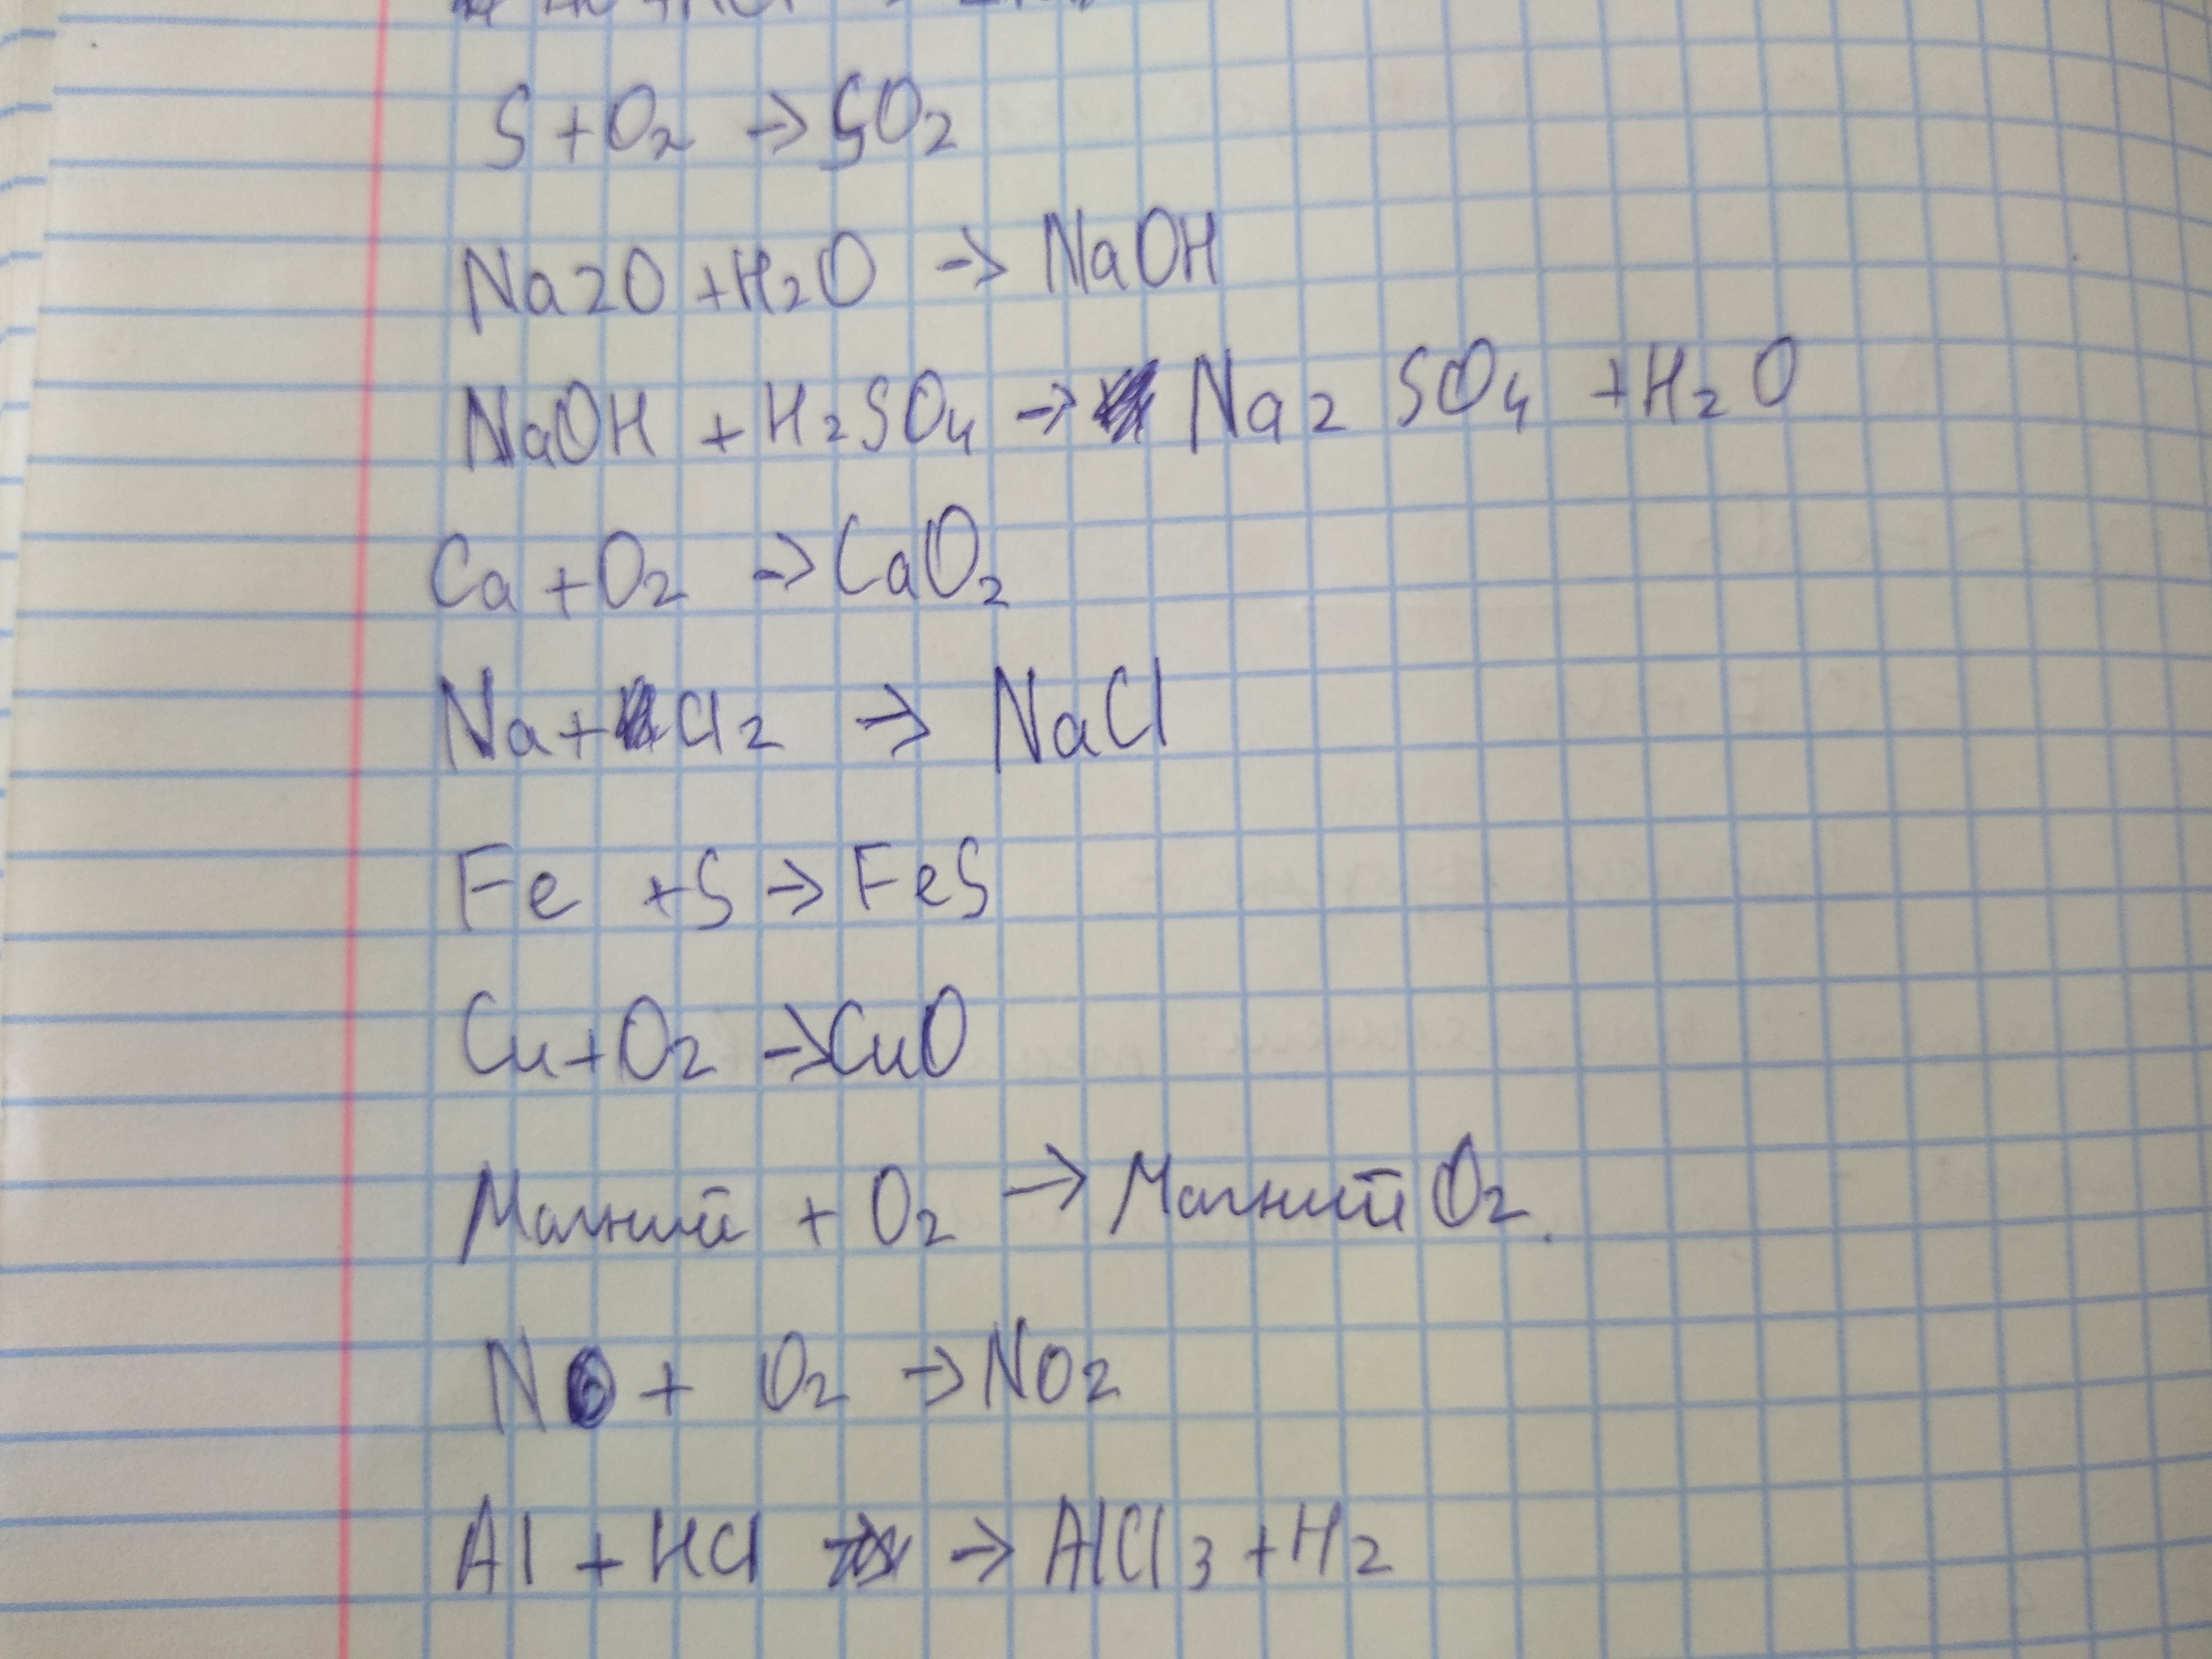 S + O₂ → SO₂
Na2O + H₂O → NaOH
NaOH + H₂SO₄ → Na₂ SO₄ + H₂O
Ca + O₂ → CaO₂
Na + Cl₂ → NaCl
Fe + S → FeS
Cu + O₂ → CuO
Магний + O₂ → Магний O₂.
NO + O₂ → NO₂
Al + HCl → AlCl₃ + H₂